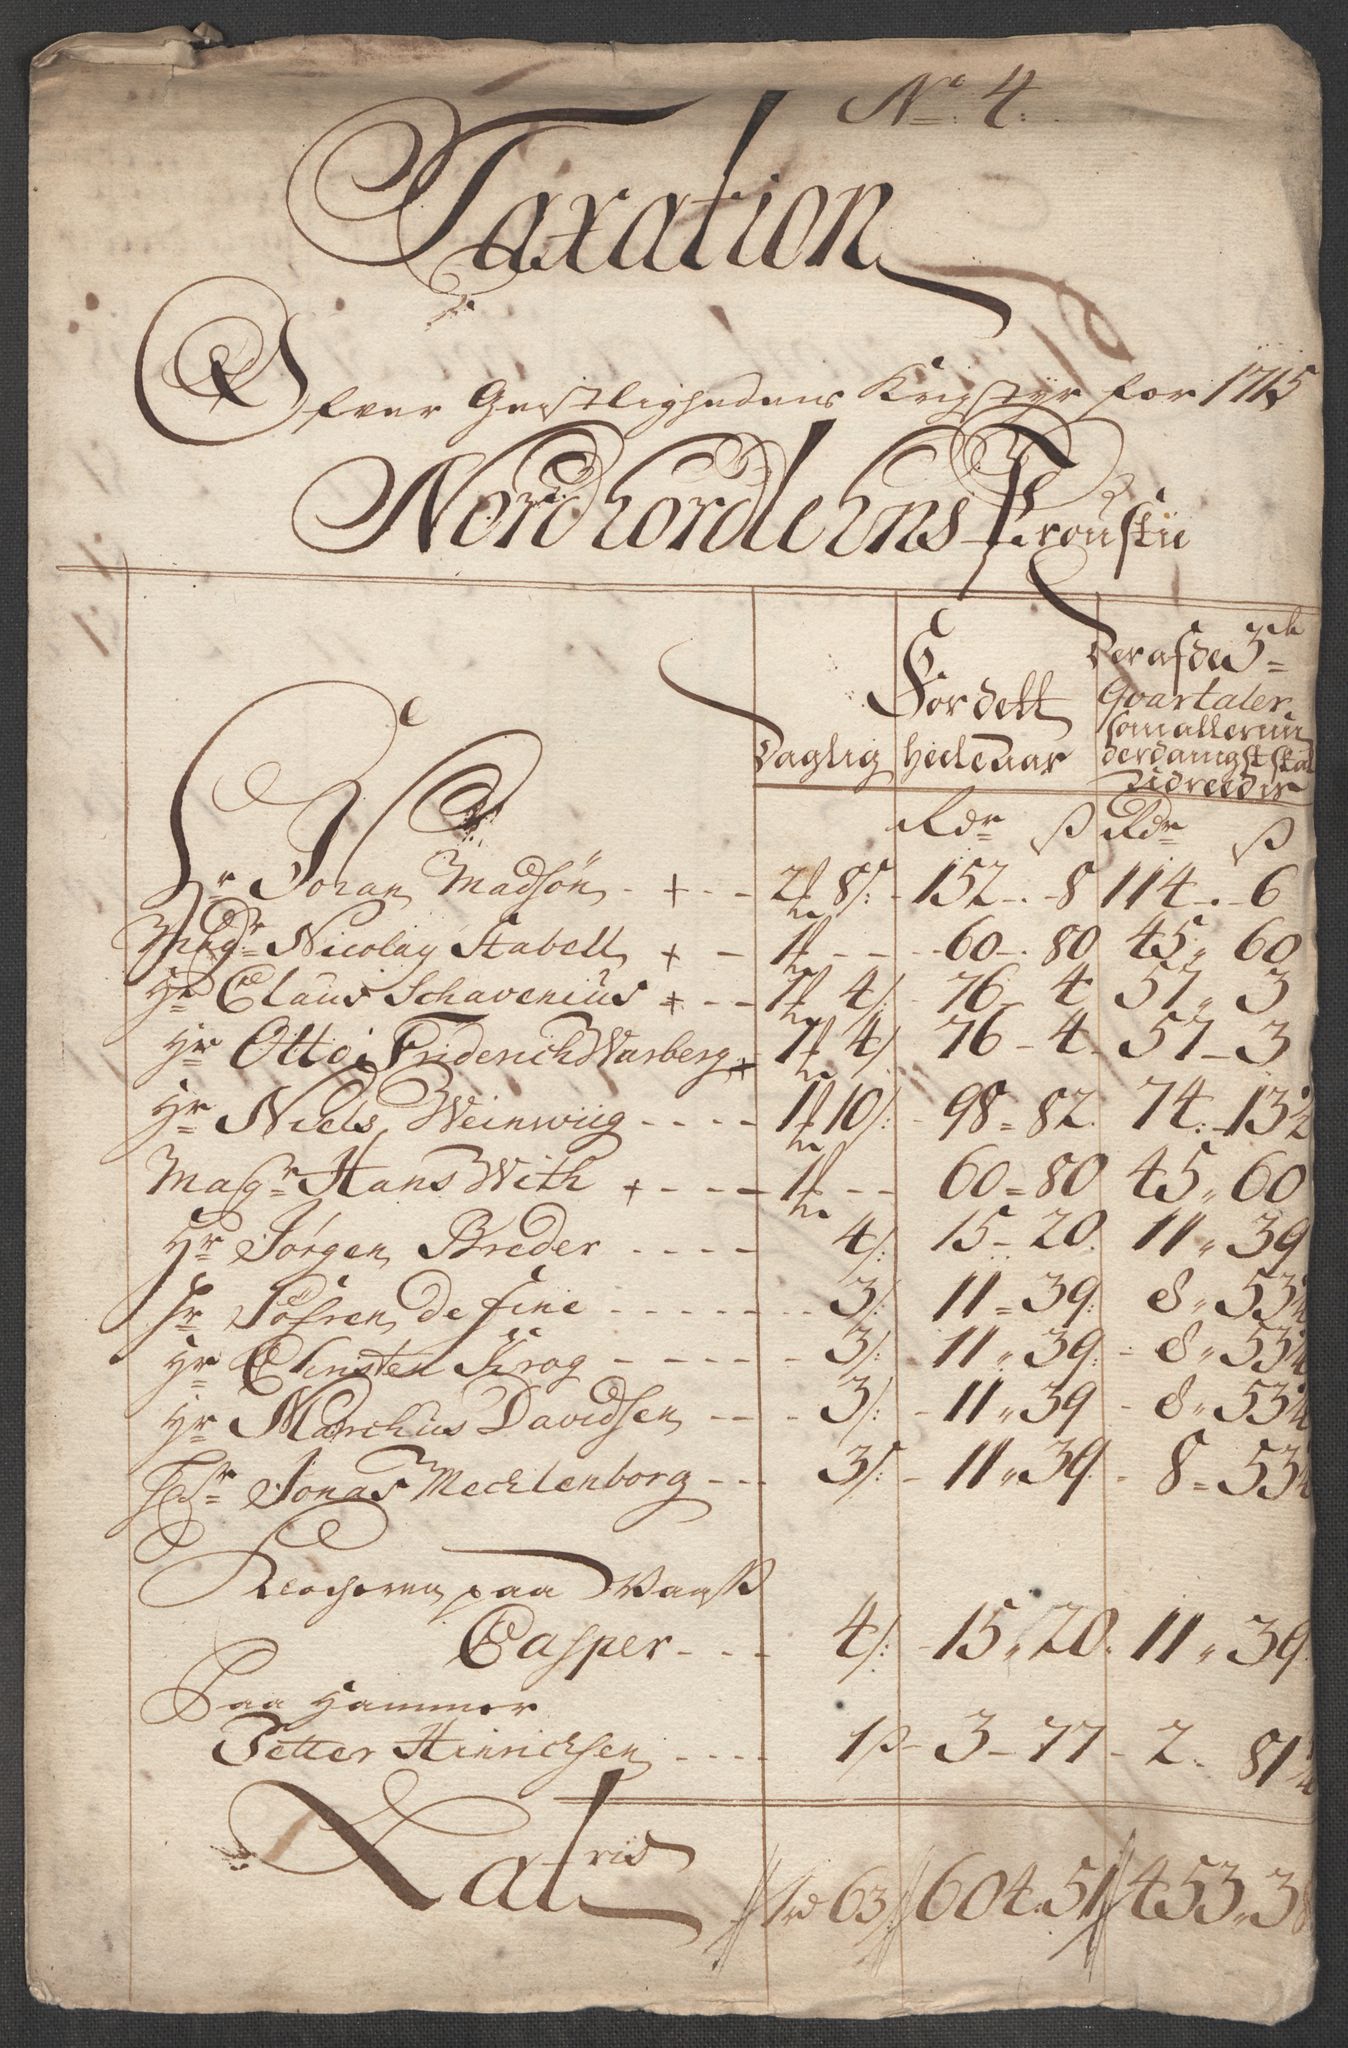 No. 4.
Taxation
Ofver Geistlighedens Krigstyr for 1715
Nordhordlehns Proustii
Daglig
For dett
heele aar
Der af de 3de
Qvartaler
som allerun
derdanigst skal
Rdr ß Rdr ß
Hr Johan Madsön + 2 8 152 8 114 6
Magr Nicolay Stabell + 1 60 80 45 60
Hr Claus Schavenius + 1 4 76 4 57 3
Hr Otto Friderich Warberg + 1 4 76 4 57 3
Hr Niels Weinwiig 1 10 98 82 74 13½
Magr Hans With + 1 60 80 45 60
Hr Jørgen Breder 4 15 20 11 39
Hr Søfren de fine 3 11 39 8 53¼
Hr Christen Krog 3 11 39 8 53¼
Hr Marchus Davidsen 3 11 39 8 53¼
Hr Jonas Mecklenborg 3 11 39 8 53¼
Klocheren paa Vanss
Casper 4 15 20 11 39
Paa Hammer
Petter Hinrichsen 1ß 3 77 2 81¾
Latris 1rd 63 604 51 453 38